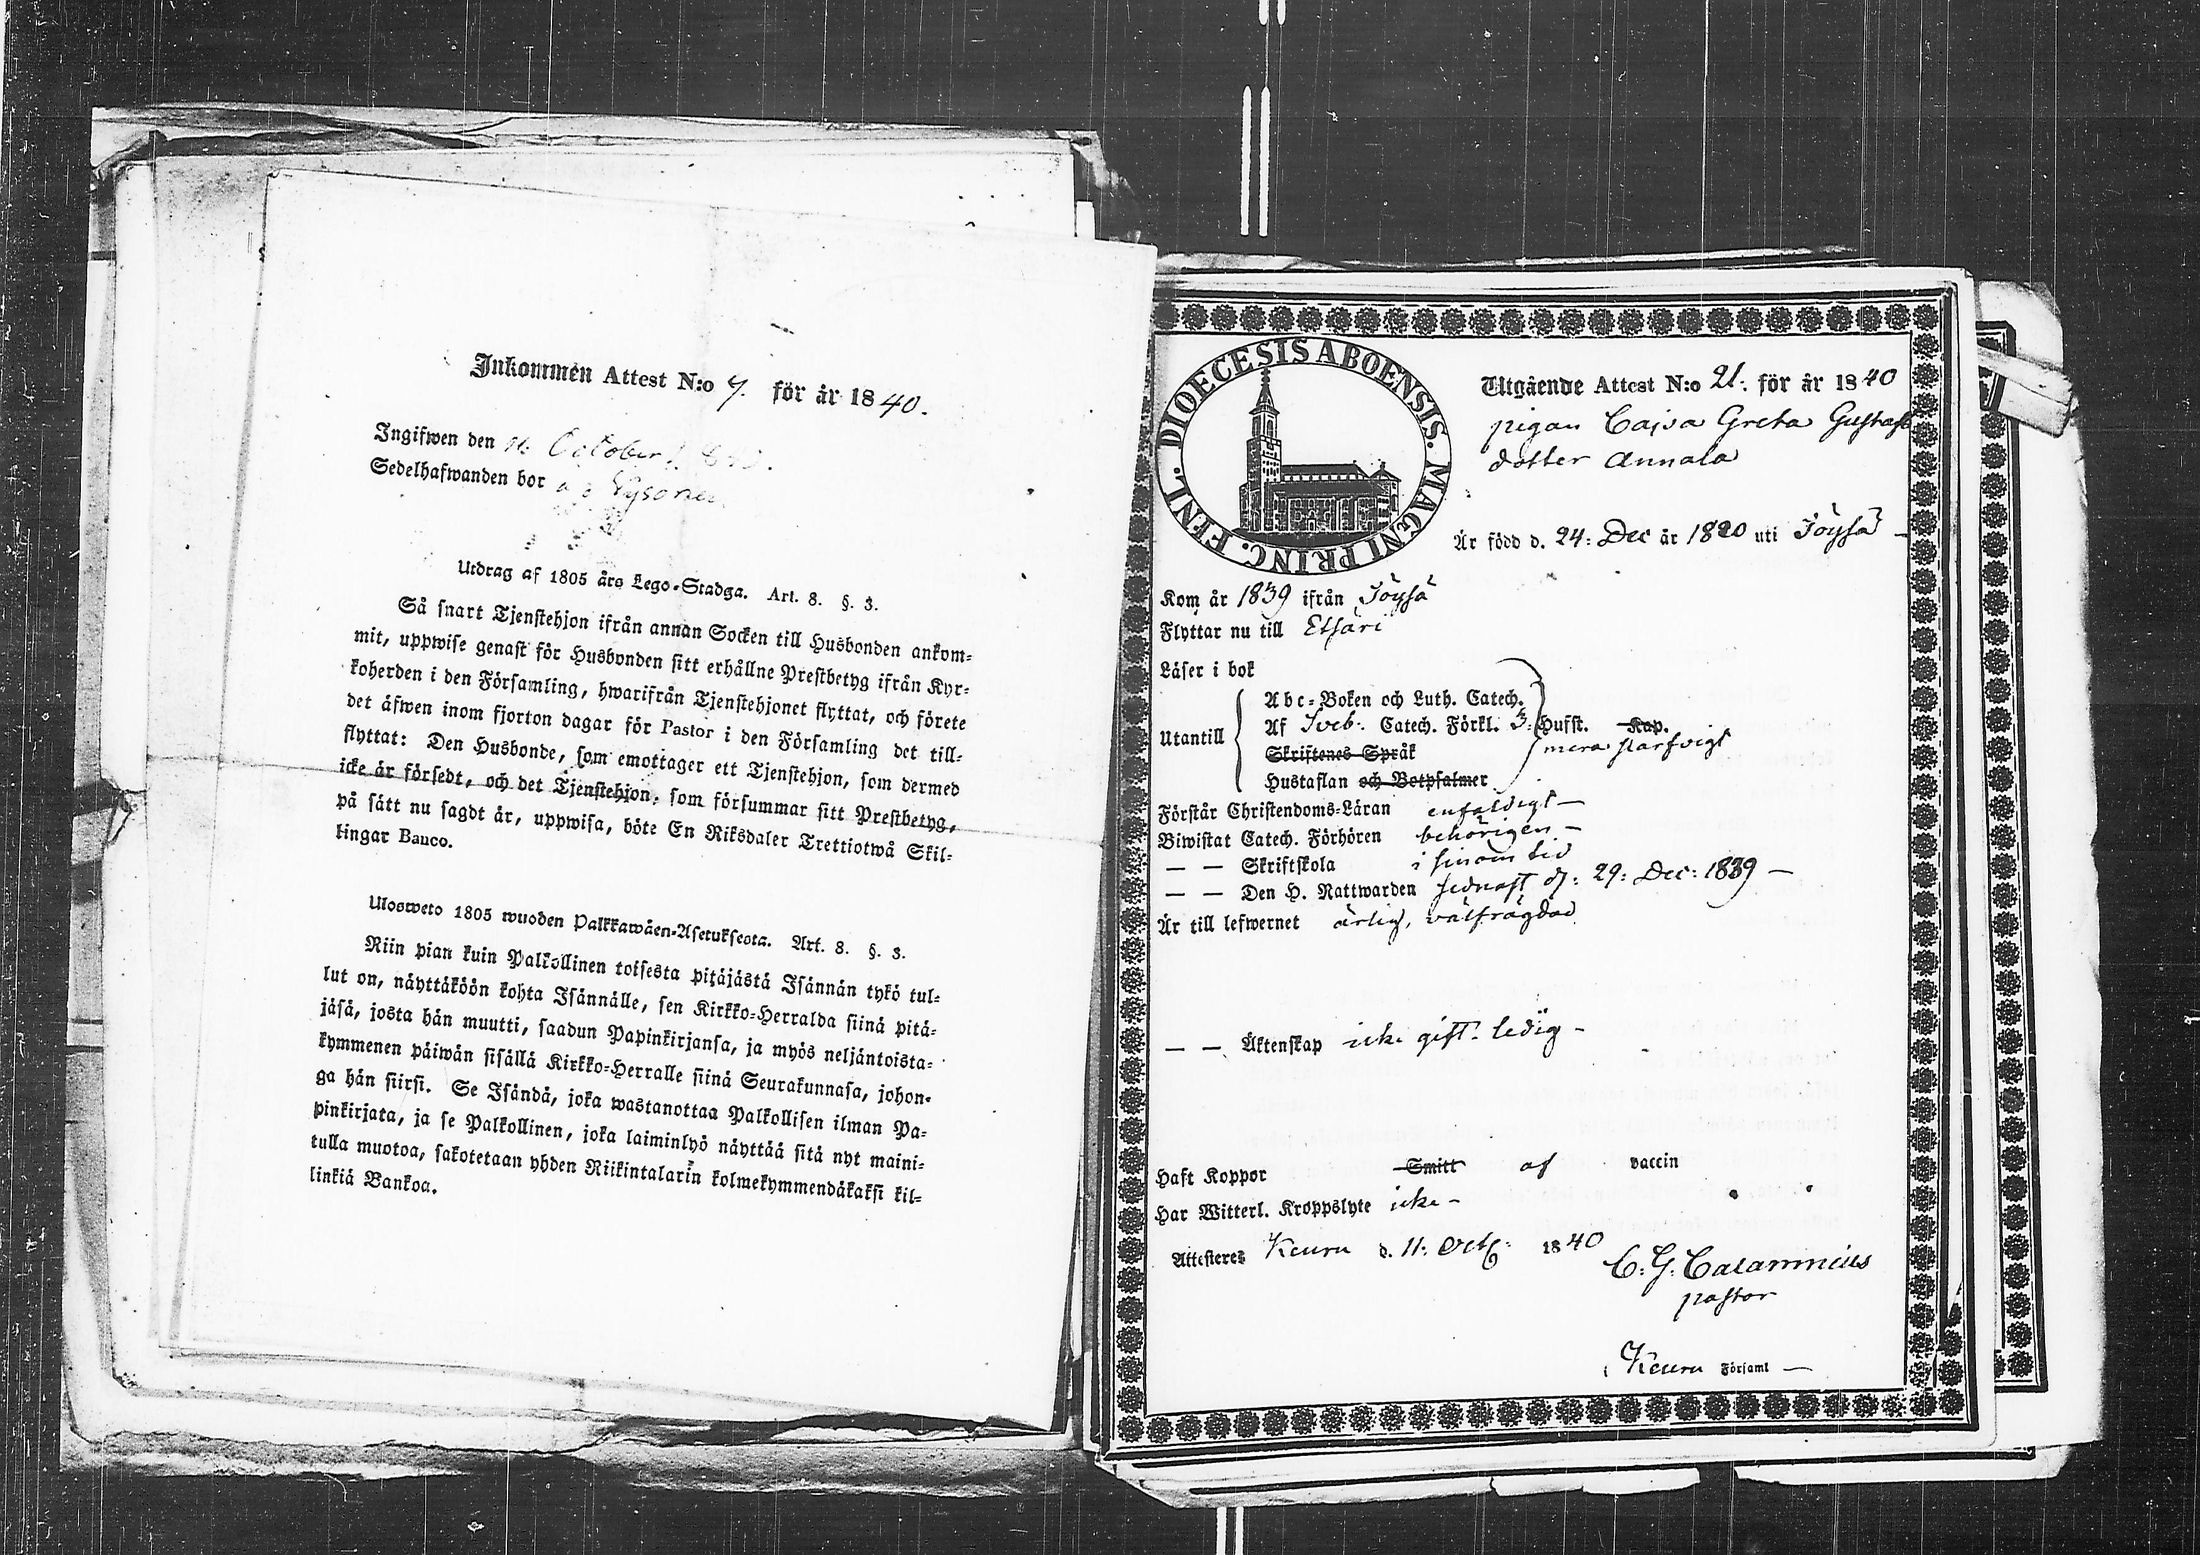 Inkommen Attest N:o 7. för år 1840.
Ingifwen den October
Sedelhafwanden bor
Utdrag af 1805 års Lego-Stadga. Art. 8. §. 3.
Så snart Tjenstehjon ifrån annan Socken till Husbonden ankom=
mit, uppwise genast för Husbonden sitt erhållne Prestbetyg ifrån Kyr=
koherden i den Församling, hwarifrån Tjenstehjonet flyttat, och förete
det äfwen inom fjorton dagar för Pastor i den Församling det till=
flyttat: Den Husbonde, som emottager ett Tjenstehjon, som dermed
icke är försedt, och det Tjenstehjon, som försummar sitt Prestbetyg,
på sätt nu sagdt är, uppwisa, böte En Riksdaler Trettiotwå Skil=
lingar Banco.
Ulosweto 1805 wuoden Palkkawäen-Asetuksesta. Art. 8. §. 3.
Niin pian kuin Palkollinen toisesta pitäjästä Isännän tykö tul=
lut on, näyttäköön kohta Isännälle, sen Kirkko=Herralda siinä pitä=
jäsä, josta hän muutti, saadun Papinkirjansa, ja myös neljäntoista=
kymmenen päiwän sisällä Kirkko=Herralle siinä Seurakunnasa, johon=
ga hän siirsi. Se Isändä, joka wastanottaa Palkollisen ilman Pa=
pinkirjata, ja se Palkollinen, joka laiminlyö näyttää sitä nyt maini=
tulla muotoa, sakotetaan yhden Riikintalarin kolmekymmendäkaksi kil=
linkiä Bankoa.
FINL. DIOECESIS ABOENSIS. MAGNI PRINC.
Utgående Attest N:o 21. för år 1840
pigan Cajsa Greta Gustafs
dotter Annala
Är född d. 24: Dec år 1820 uti Töysä
Kom år 1839 ifrån Töysä
Flyttar nu till Etsäri
Läser i bok
Abc=Boken och Luth. Catech.
Utantill Af Sveb: Catech. Förkl. 3: Hufst. Kap.
mera
Skriftenes Språk
Hustaflan och Botpsalmer
Förstår Christendoms=Läran enfaldigt —
Biwistat Catech. Förhören behörigen —
— — Skriftskola i sinom tid
— — Den H. Nattwarden sednast d: 29: Dec: 1839 —
Är till lefwernet ärlig, välfrägdad
— — Äktenskap icke gift. ledig —
Haft Koppor Smitt af vaccin
Har Witterl. Kroppslyte icke —
Attesteres Keuru d. 11: Octb: 1840
C: G: Calamnius
pastor
Keuru Församl —